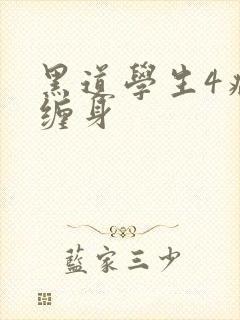 黑道學生4
缠身
藍家三少